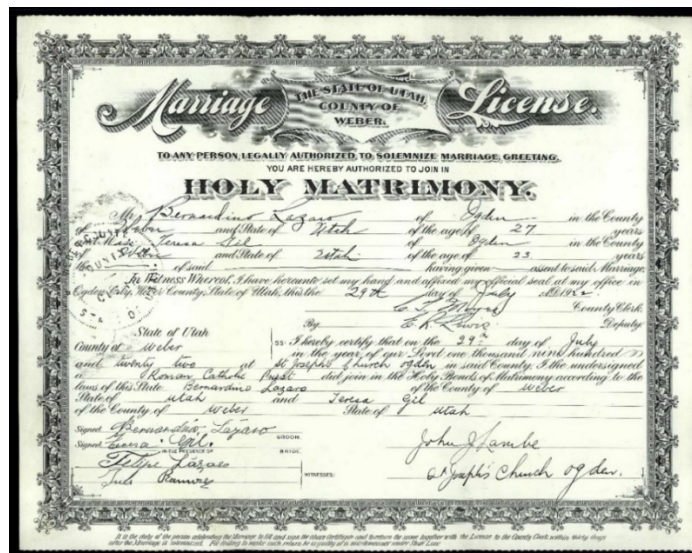 Marriage License.
THE STATE OF UTAH,
COUNTY OF
WEBER.
TO ANY PERSON, LEGALLY AUTHORIZED, TO SOLEMNIZE MARRIAGE, GREETING.
YOU ARE HEREBY AUTHORIZED TO JOIN IN
HOLY MATRIMONY.
Mr. Bernardino Lazaro of Ogden in the County
of Weber and State of Utah of the age of 27 years
and Miss Teresa Gil of Ogden in the County
of Weber and State of Utah of the age of 23 years
the of said having given assent to said Marriage.
In Witness Whereof, I have hereunto set my hand and affixed my official seal at my office in
Ogden City, Weber County, State of Utah, this the 29th day of July A.D. 1922
County Clerk.
By Deputy
State of Utah
County of Weber SS I hereby certify that on the 29th day of July
in the year of our Lord one thousand nine hundred
and twenty two at St Joseph's Church Ogden in said County, I the undersigned
a Roman Catholic Priest did join in the Holy Bonds of Matrimony according to the
laws of this State Bernardino Lazaro of the County of Weber
State of Utah and Teresa Gil
of the County of Weber State of Utah
Signed Bernardino Lázaro GROOM.
Signed Teresa Gil. BRIDE.
IN THE PRESENCE OF
Felipe Lázaro
Ramirez
WITNESSES.
John J Lambe
St Joseph's Church Ogden.
It is the duty of the person celebrating the Marriage to fill and sign the above Certificate and to return the same together with the License to the County Clerk within thirty days
after the Marriage is solemnized. For failing to make such return he is guilty of a misdemeanor under Utah Law